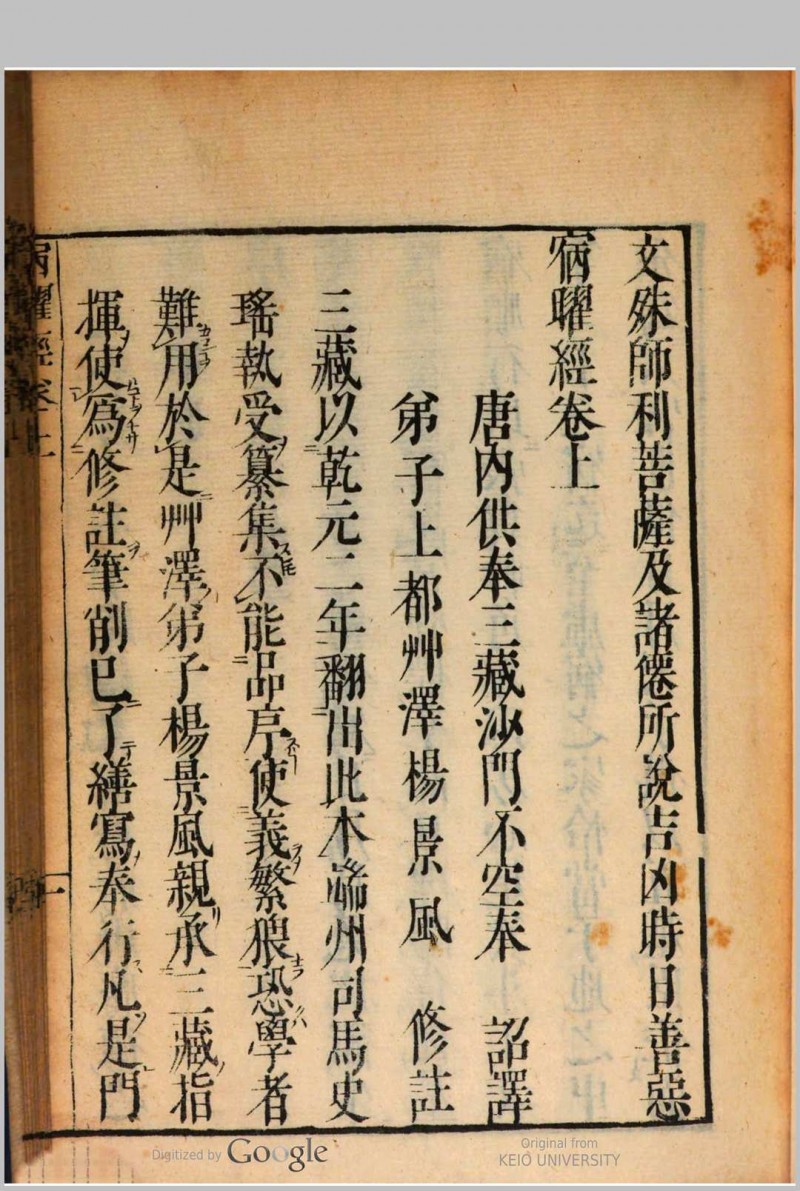 文殊師利菩薩及諸僊所說吉凶時日善惡
宿曜經卷上
唐內供奉三藏沙門不空奉 詔譯
弟子上都艸澤楊景風 修註
三藏以乾元二年翻出此本端州司馬史
瑤執受纂集不能品序使義繁猥恐學者
難用於是艸澤弟子楊景風親承三藏指
揮使爲修註筆削已了繕寫奉行凡是門
宿曜經卷上 一
Digitized by Google
Original from
KEIO UNIVERSITY